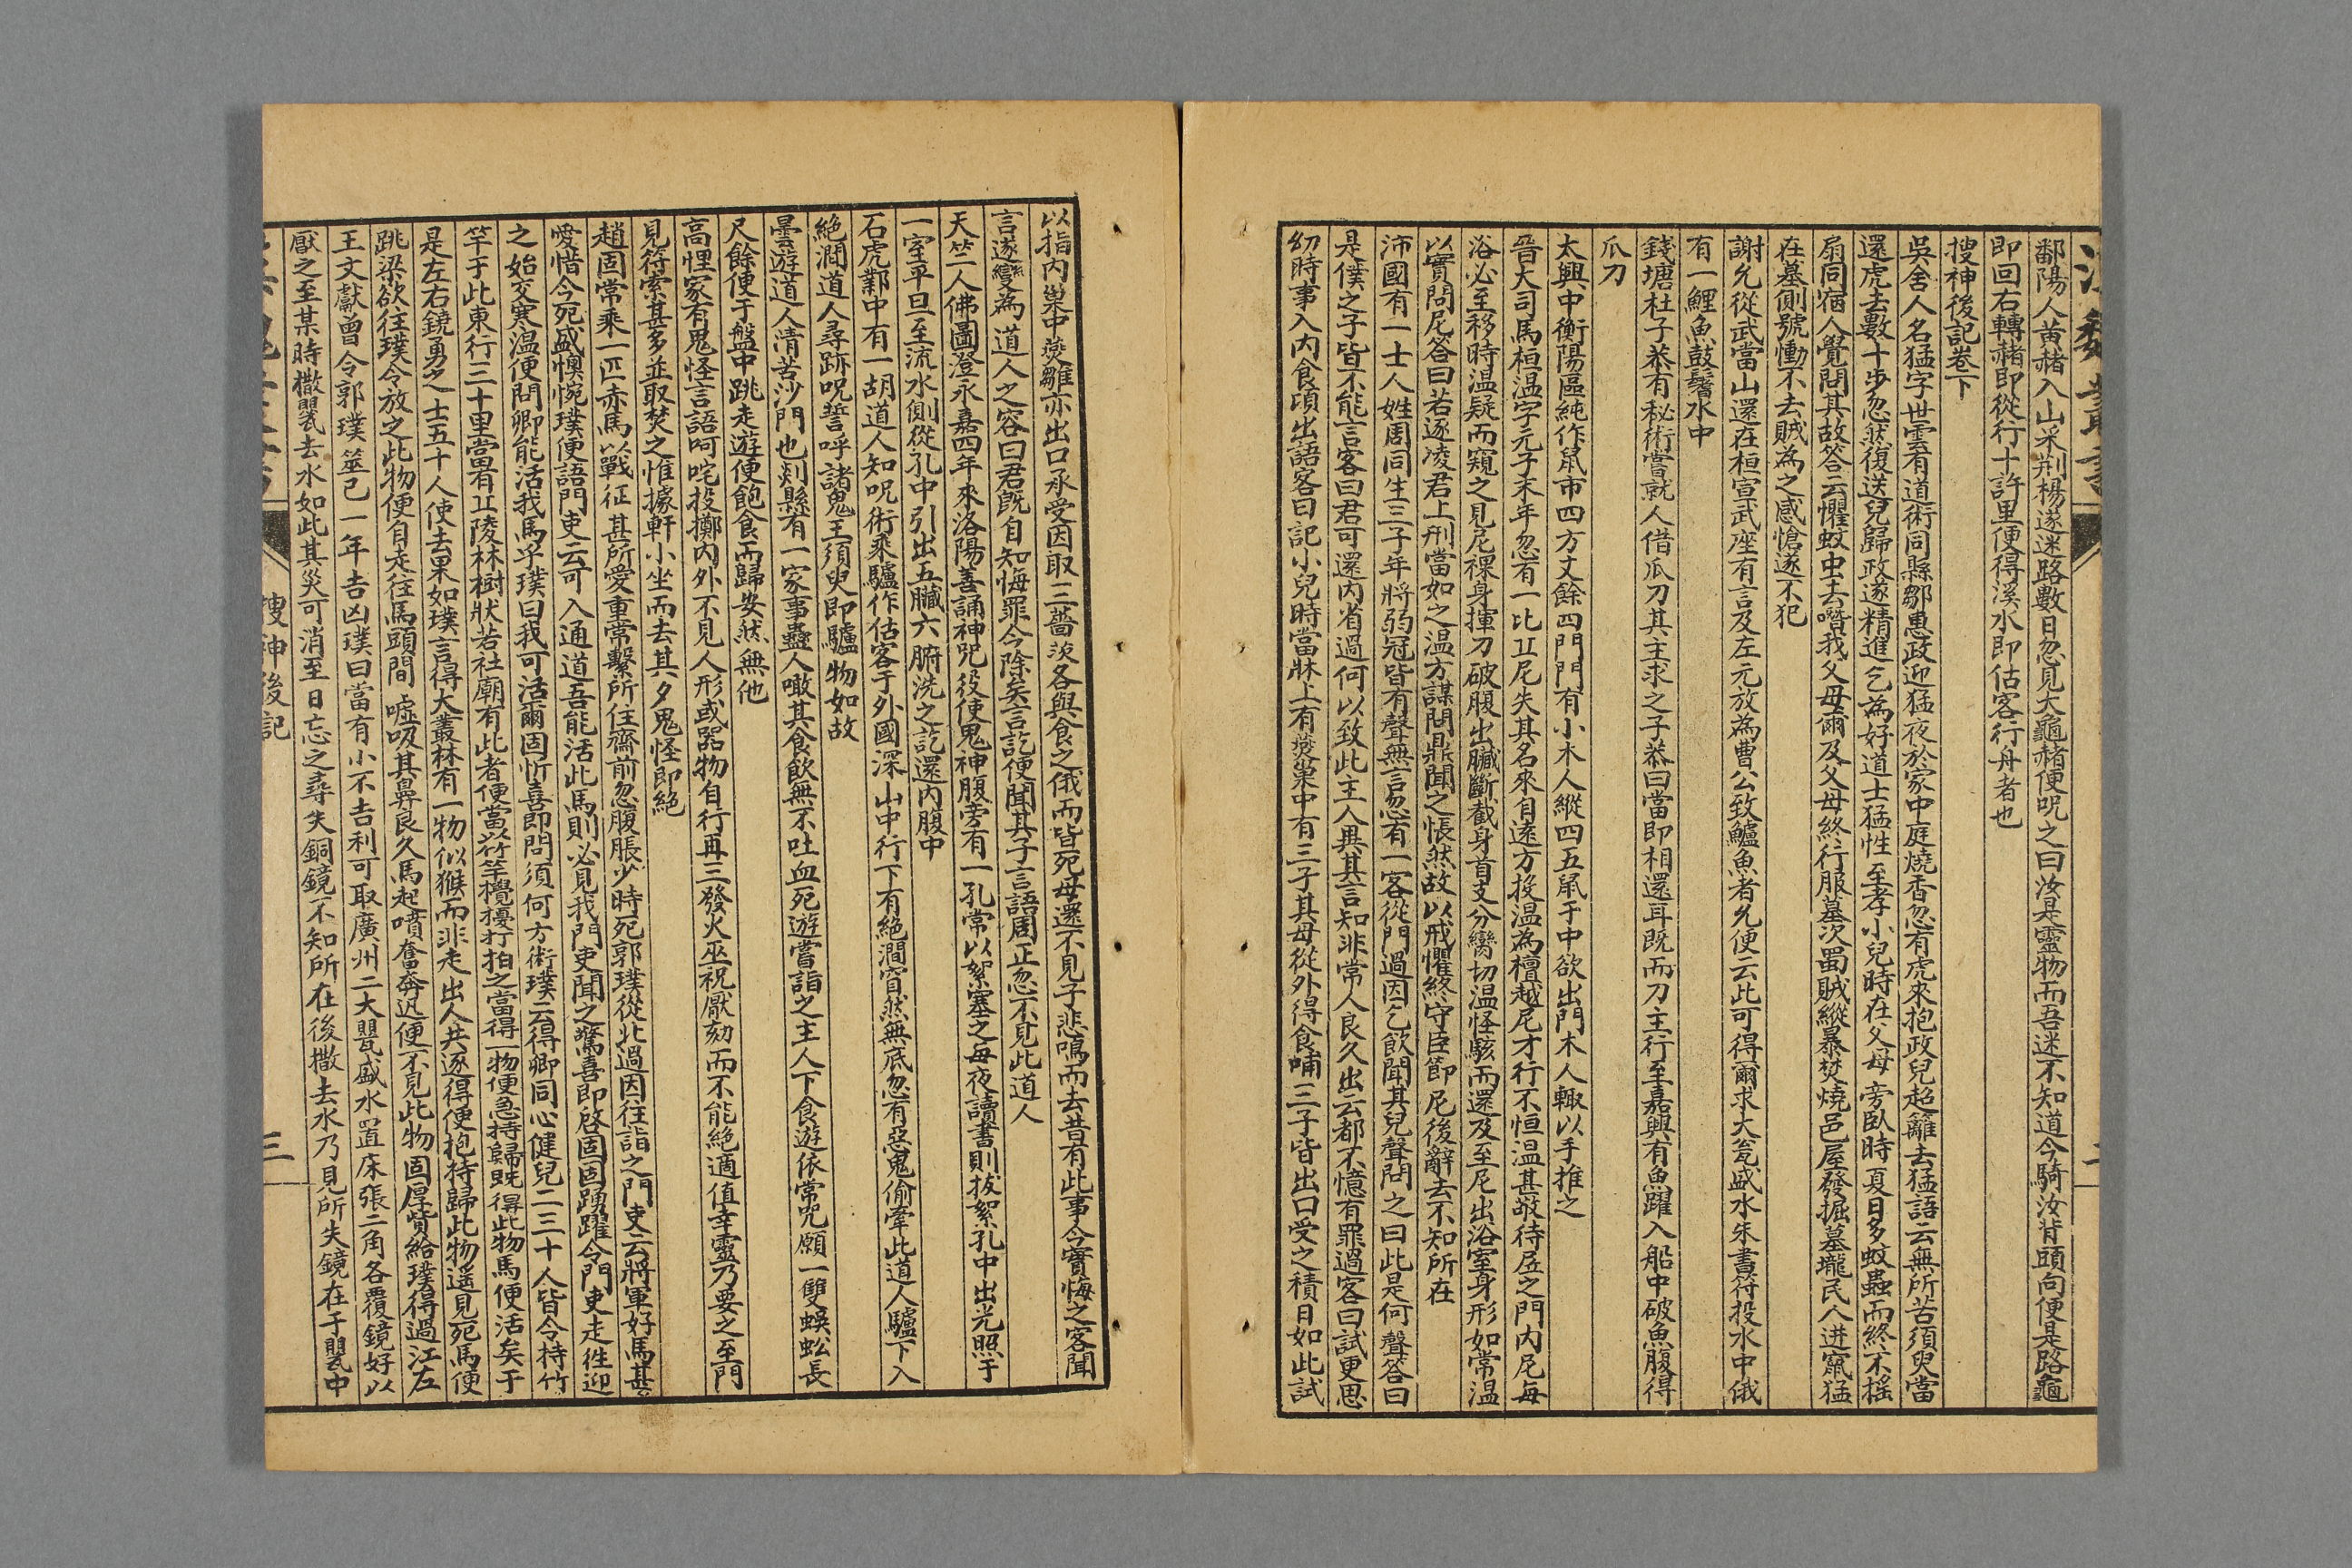 鄱陽人黃赭入山采荆楊遂迷路數日忽見大龜赭便呪之曰汝是靈物而吾迷不知道今騎汝背頭向便是路龜
即回右轉赭即從行十許里便得溪水即估客行舟者也
搜神後記卷下
吳舍人名猛字世雲有道術同縣鄒惠政迎猛夜於家中庭燒香忽有虎來抱政兒超籬去猛語云無所苦須臾當
還虎去數十步忽然復送兒歸政遂精進乞為好道士猛性至孝小兒時在父母旁臥時夏日多蚊蟲而終不搖
扇同宿人覺問其故答云懼蚊虫去噆我父母爾及父母終行服墓次蜀賊縱暴焚燒邑屋發掘墓壠民人迸竄猛
在墓側號慟不去賊為之感愴遂不犯
謝允從武當山還在桓宣武座有言及左元放為曹公致鱸魚者允便云此可得爾求大瓮盛水朱書符投水中俄
有一鯉魚鼓鬐水中
錢塘杜子恭有秘術嘗就人借瓜刀其主求之子恭曰當即相還耳既而刀主行至嘉興有魚躍入船中破魚腹得
瓜刀
太興中衡陽區純作鼠市四方丈餘四門門有小木人縱四五鼠于中欲出門木人輙以手推之
晉大司馬桓温字元子末年忽有一比丘尼失其名來自遠方投温為檀越尼才行不恒温甚敬待居之門内尼每
浴必至移時温疑而窺之見尼裸身揮刀破腹出臟斷截身首支分臠切温怪駭而還及至尼出浴室身形如常温
以實問尼答曰若逐凌君上刑當如之温方謀問鼎聞之悵然故以戒懼終守臣節尼後辭去不知所在
沛國有一士人姓周同生三子年將弱冠皆有聲無言忽有一客從門過因乞飲聞其兒聲問之曰此是何聲答曰
是僕之子皆不能言客曰君可還内省過何以致此主人異其言知非常人良久出云都不憶有罪過客曰試更思
幼時事入内食頃出語客曰記小兒時當牀上有燕巢中有三子其母從外得食哺三子皆出口受之積日如此試
以指内巢中燕雛亦出口承受因取三薔茨各與食之俄而皆死母還不見子悲鳴而去昔有此事今實悔之客聞
言遂變為道人之容曰君既自知悔罪今除矣言訖便聞其子言語周正忽不見此道人
天竺人佛圖澄永嘉四年來洛陽善誦神咒役使鬼神腹旁有一孔常以絮塞之每夜讀書則拔絮孔中出光照于
一室平旦至流水側從孔中引出五臟六腑洗之訖還内腹中
石虎鄴中有一胡道人知呪術乘驢作估客于外國深山中行下有絕澗窅然無底忽有惡鬼偷牽此道人驢下入
絕澗道人尋跡呪誓呼諸鬼王須臾即驢物如故
曇遊道人清苦沙門也剡縣有一家事蠱人噉其食飲無不吐血死遊嘗詣之主人下食遊依常咒願一雙蜈蚣長
尺餘便于盤中跳走遊便飽食而歸安然無他
高悝家有鬼怪言語呵咤投擲内外不見人形或器物自行再三發火巫祝厭劾而不能絕適值幸靈乃要之至門
見符索甚多並取焚之惟據軒小坐而去其夕鬼怪即絕
趙固常乘一匹赤馬以戰征甚所愛重常繫所住齋前忽腹脹少時死郭璞從北過因往詣之門吏云將軍好馬甚
愛惜今死盛懊惋璞便語門吏云可入通道吾能活此馬則必見我門吏聞之驚喜即啓固固踴躍令門吏走徃迎
之始交寒温便問卿能活我馬乎璞曰我可活爾固忻喜即問須何方術璞云得卿同心健兒二三十人皆令持竹
竿于此東行三十里當有丘陵林樹狀若社廟有此者便當以竹竿攪擾打拍之當得一物便急持歸既得此物馬便活矣于
是左右鏡勇之士五十人使去果如璞言得大叢林有一物似猴而非走出人共逐得便抱持歸此物遥見死馬便
跳梁欲往璞令放之此物便自走往馬頭間嘘吸其鼻良久馬起噴奮奔迅便不見此物固厚貲給璞得過江左
王文獻曾令郭璞筮己一年吉凶璞曰當有小不吉利可取廣州二大罌盛水置床張二角各覆鏡好以
厭之至某時撒罌去水如此其災可消至日忘之尋失銅鏡不知所在後撒去水乃見所失鏡在于罌中
搜神後記
三